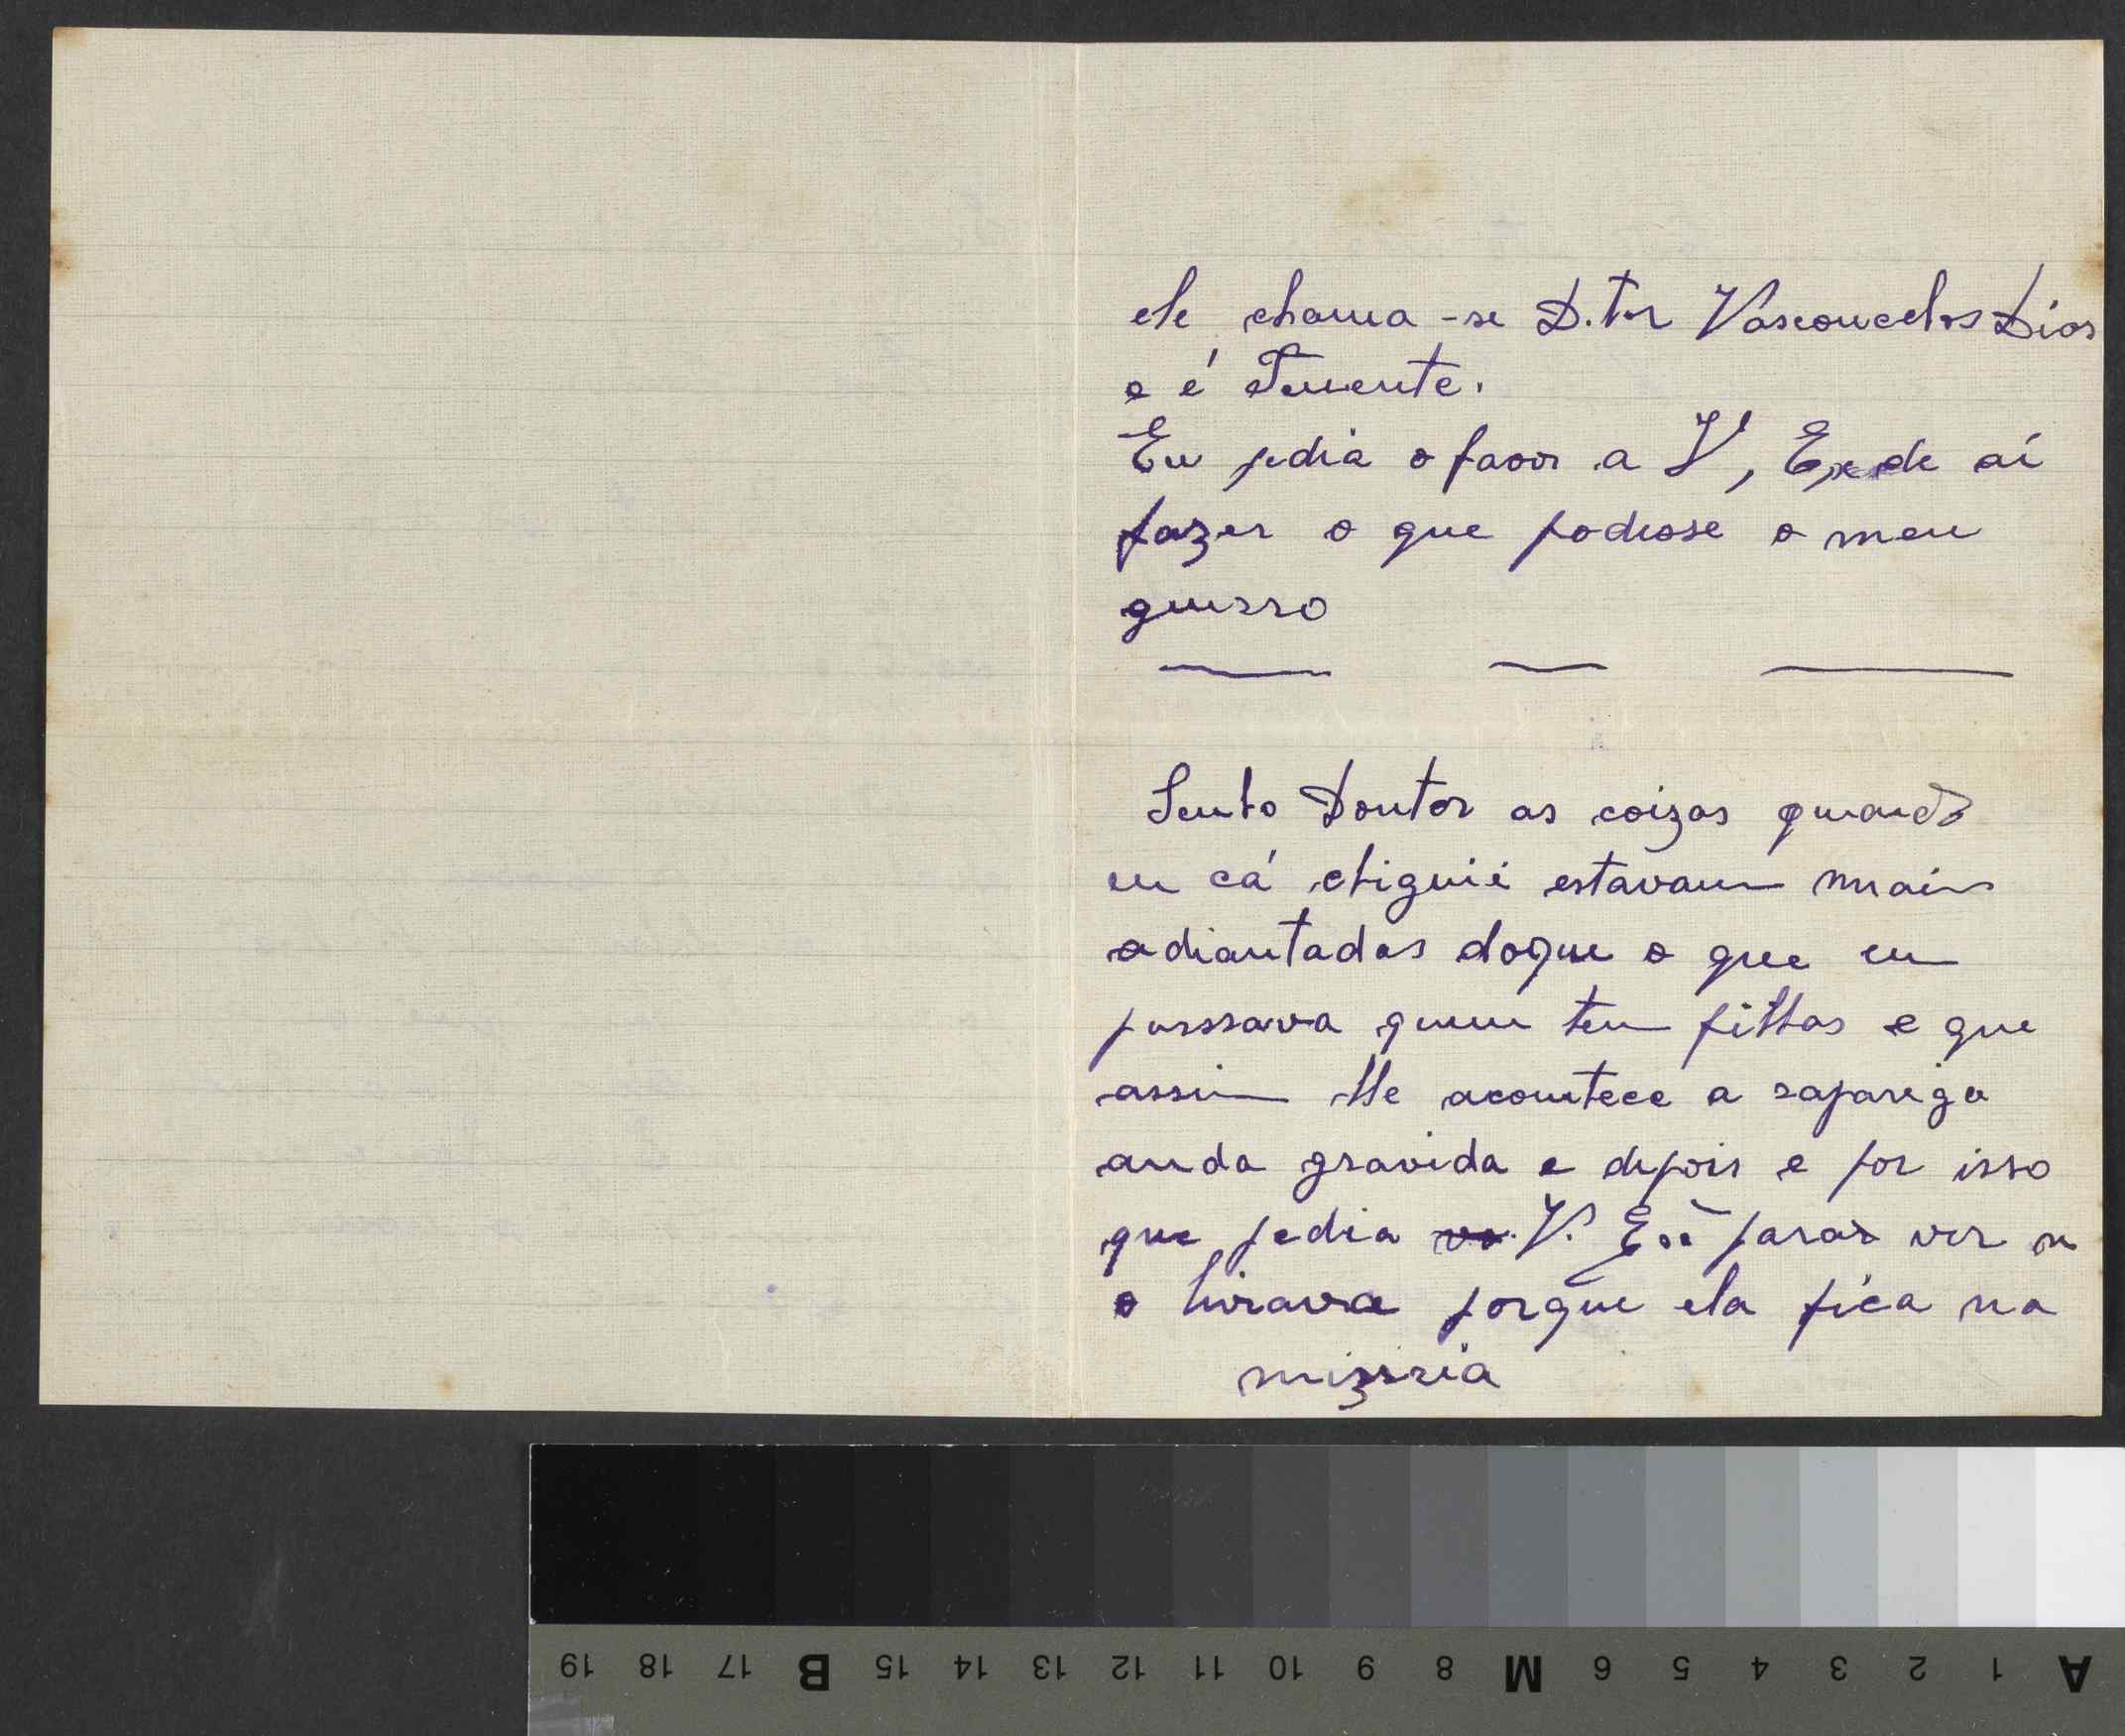 ele chama-se D.tor Vasconcelos Dias
e é Tenente.
Eu pedia o favor a V, Ex de aí
fazer o que podese o meu
guerro
Senho Doutor as coizas quando
eu cá chiguei estavam mais
adiantadas doque o que eu
pensava quem tem filhas e que
assim lhe acontece a raparega
anda gravida e depois e por isso
que pedia V. Exª para ver se
o livrava porque ela fica na
miziria
19 18 17 B 15 14 13 12 11 10 9 8 M 6 5 4 3 2 1 A